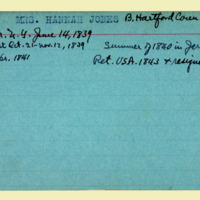 MRS. HANNAH JONES B. Hartford Conn
N.Y. June 14, 1839
Oct. 21-Nov. 12, 1839 Summer of 1840 in Jer
1841 Ret. USA. 1843 & resigne